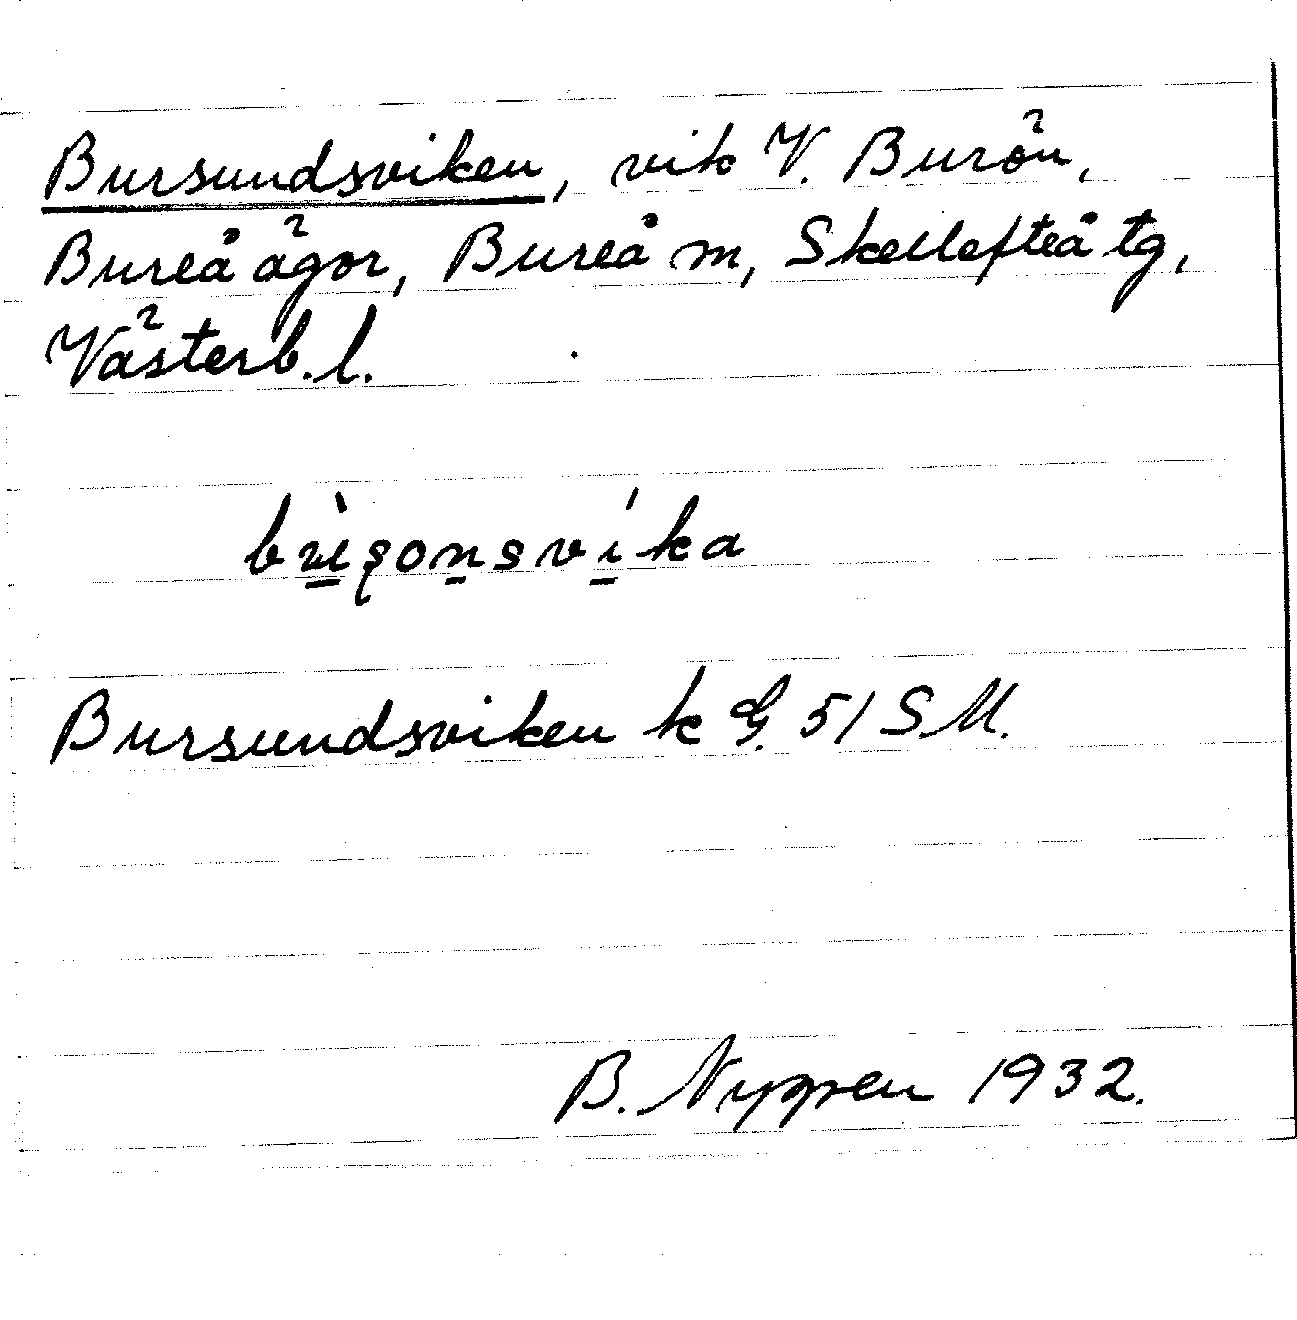 Bursundsviken, vik V. Burön,
Bureå ägor, Bureå sn, Skellefteå tg,
Västerb. l.
Bursundsviken k G. 51 SM.
B. Nygren 1932.